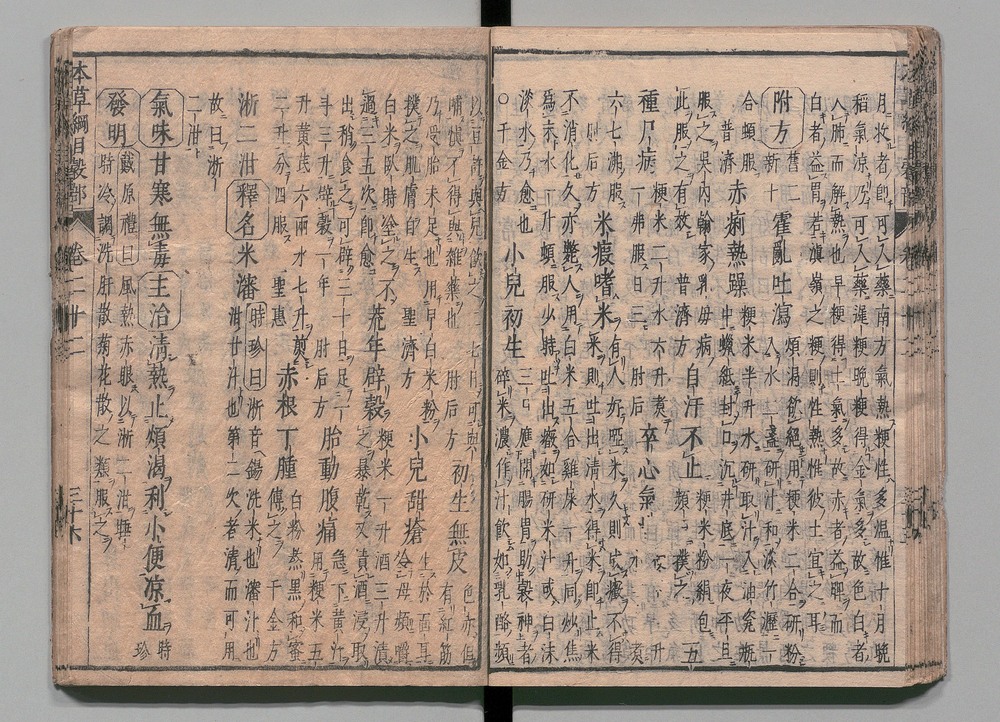 月收者即可入藥南方氣熱粳性多温惟十月晩
稻氣凉乃可入藥遲粳晩粳得金氣多故色白者
入肺而解熱也早粳得土氣多故赤者益脾而
白者益胃若滇嶺之粳則性熱惟彼土宜之耳
附方 舊二 新十 霍亂吐瀉 煩渴欲絕用粳米二合研粉
入水二盞研汁和淡竹瀝一
合頓服 普濟 赤痢熱躁 粳米半升水研取汁入油瓷瓶
中蠟紙封口沉井底一夜平旦
服之吳內翰家乳母病
此服之有效 普濟方 自汗不止 粳米粉絹包
頻頻撲之 五
種尸病 粳米二升水六升煮
一沸服日三 肘后 卒心氣痛 粳米二升
水
六七沸服
肘后方 米瘕嗜米 有人好啞米久則成癥不得
米則吐出清水得米即止米
不消化久亦斃人用白米五合雞屎一升同炒焦
爲末水一升頓服少時吐出癥如研米汁或白沫
淡水乃愈也
○千金方 小兒初生 三日應開腸胃助穀神者
碎米濃作汁飲如乳酪頻
以豆許與兒飲之 七日可與
哺愼不得與雜藥也 肘后方 初生無皮 色赤但
有紅筋
乃受胎未足也用早白米粉
撲之肌膚自生 聖濟方 小兒甜瘡 生於面耳
令母頻嚼
白米臥時塗之不
過三五次即愈 荒年辟穀 粳米一升酒三升漬
之暴乾又漬酒浸取
出稍食之可辟三十日足一
斗三升辟穀一年 肘后方 胎動腹痛 急下黄汁
用粳米五
升黄芪六兩水七升煎
二升分四服 聖惠 赤根丁腫 白粉熬黑和蜜
傅之 千金方
淅二泔 釋名 米瀋 時珍曰淅音錫洗米也瀋汁也
泔甘汁也第二次者清而可用
故曰淅
二泔
氣味甘寒無毒 主治清熱止煩渴利小便凉血 時
珍
發明 戴原禮曰風熱赤眼以淅二泔
時冷調洗肝散菊花散之類服之
本草綱目穀部 卷二十二 三十六